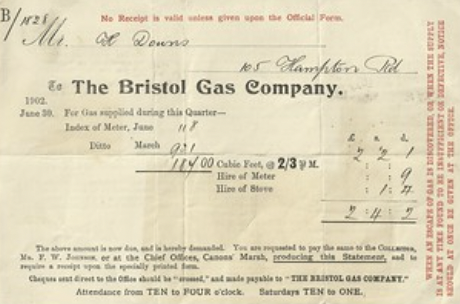 B/1828
No Receipt is valid unless given upon the Official Form.
Mr. H Downs
105 Hampton Rd
To The Bristol Gas Company.
1902.
June 30. For Gas supplied during this Quarter—
Index of Meter, June 118
Ditto March 921
£ s. d.
18700 Cubic Feet, @ 2/3 P M. 2 2 1
Hire of Meter : : 9
Hire of Stove : 1 :
2 : 4 :
The above amount is now due, and is hereby demanded. You are requested to pay the same to the COLLECTOR,
MR. F. W. JOHNSON, or at the Chief Offices, Canons' Marsh, producing this Statement, and to
require a receipt upon the specially printed form.
Cheques sent direct to the Office should be "crossed," and made payable to "THE BRISTOL GAS COMPANY."
Attendance from TEN to FOUR o'clock. Saturdays TEN to ONE.
WHEN AN ESCAPE OF GAS IS DISCOVERED, OR WHEN THE SUPPLY
IS AT ANY TIME FOUND TO BE INSUFFICIENT OR DEFECTIVE, NOTICE
SHOULD AT ONCE BE GIVEN AT THE OFFICE.